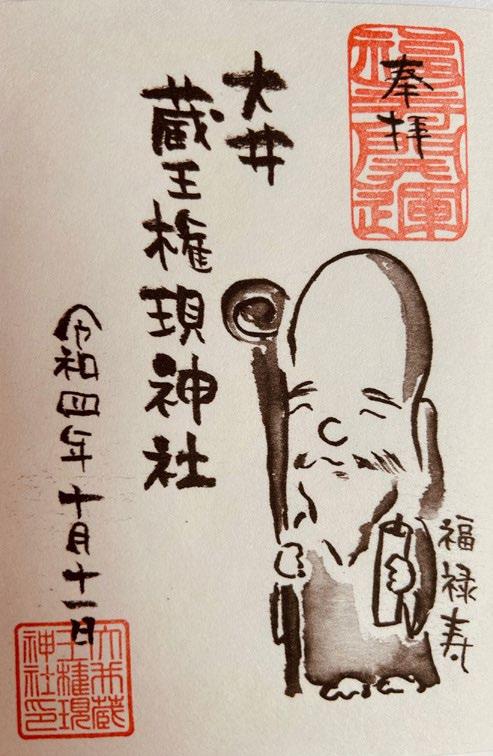 奉拝
大井
蔵王権現神社
令和四年十月十一日
福禄寿
大井蔵
王権現
神社印